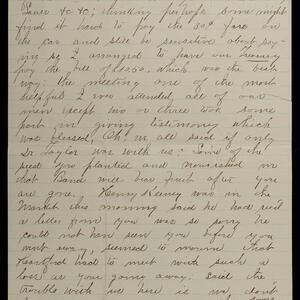 fares 40 40; thinking perhaps some might
find it hard to pay the 80¢ fare on
the car and still be sensitive about pay-
ing so I arranged to have our Treasury
pay the bill of 20.50. which was the best
way; the meeting one of the most
helpful I ever attended, all of our
men except two or three took some
part in giving testimony which
was blessed, Oh! we all said if only
Dr Taylor was with us: Some of the
seed you planted and nourished in
that band will bear fruit after you
are gone. Henry Keeney was in the
Market this morning said he had rec'd
a letter from you was so sorry he
could not have seen you before you
went away, seemed to mourn that
Hartford had to meet with such a
loss as your going away. Said the
trouble with us here is we don't